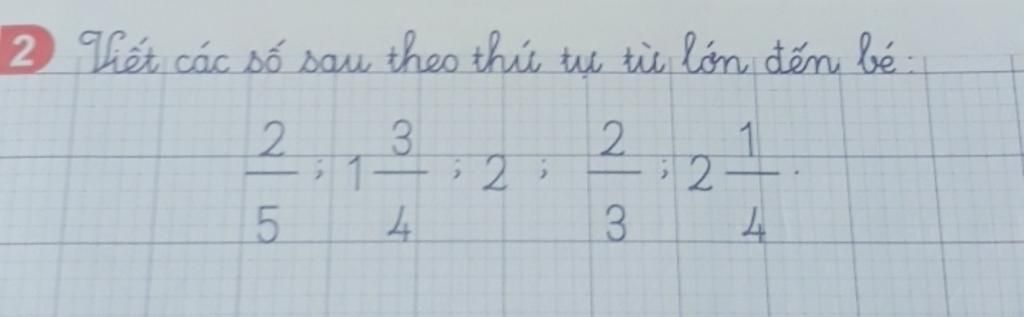 2 Viết các số sau theo thứ tự từ lớn đến bé:
2/5 ; 1 3/4 ; 2 ; 2/3 ; 2 1/4 .